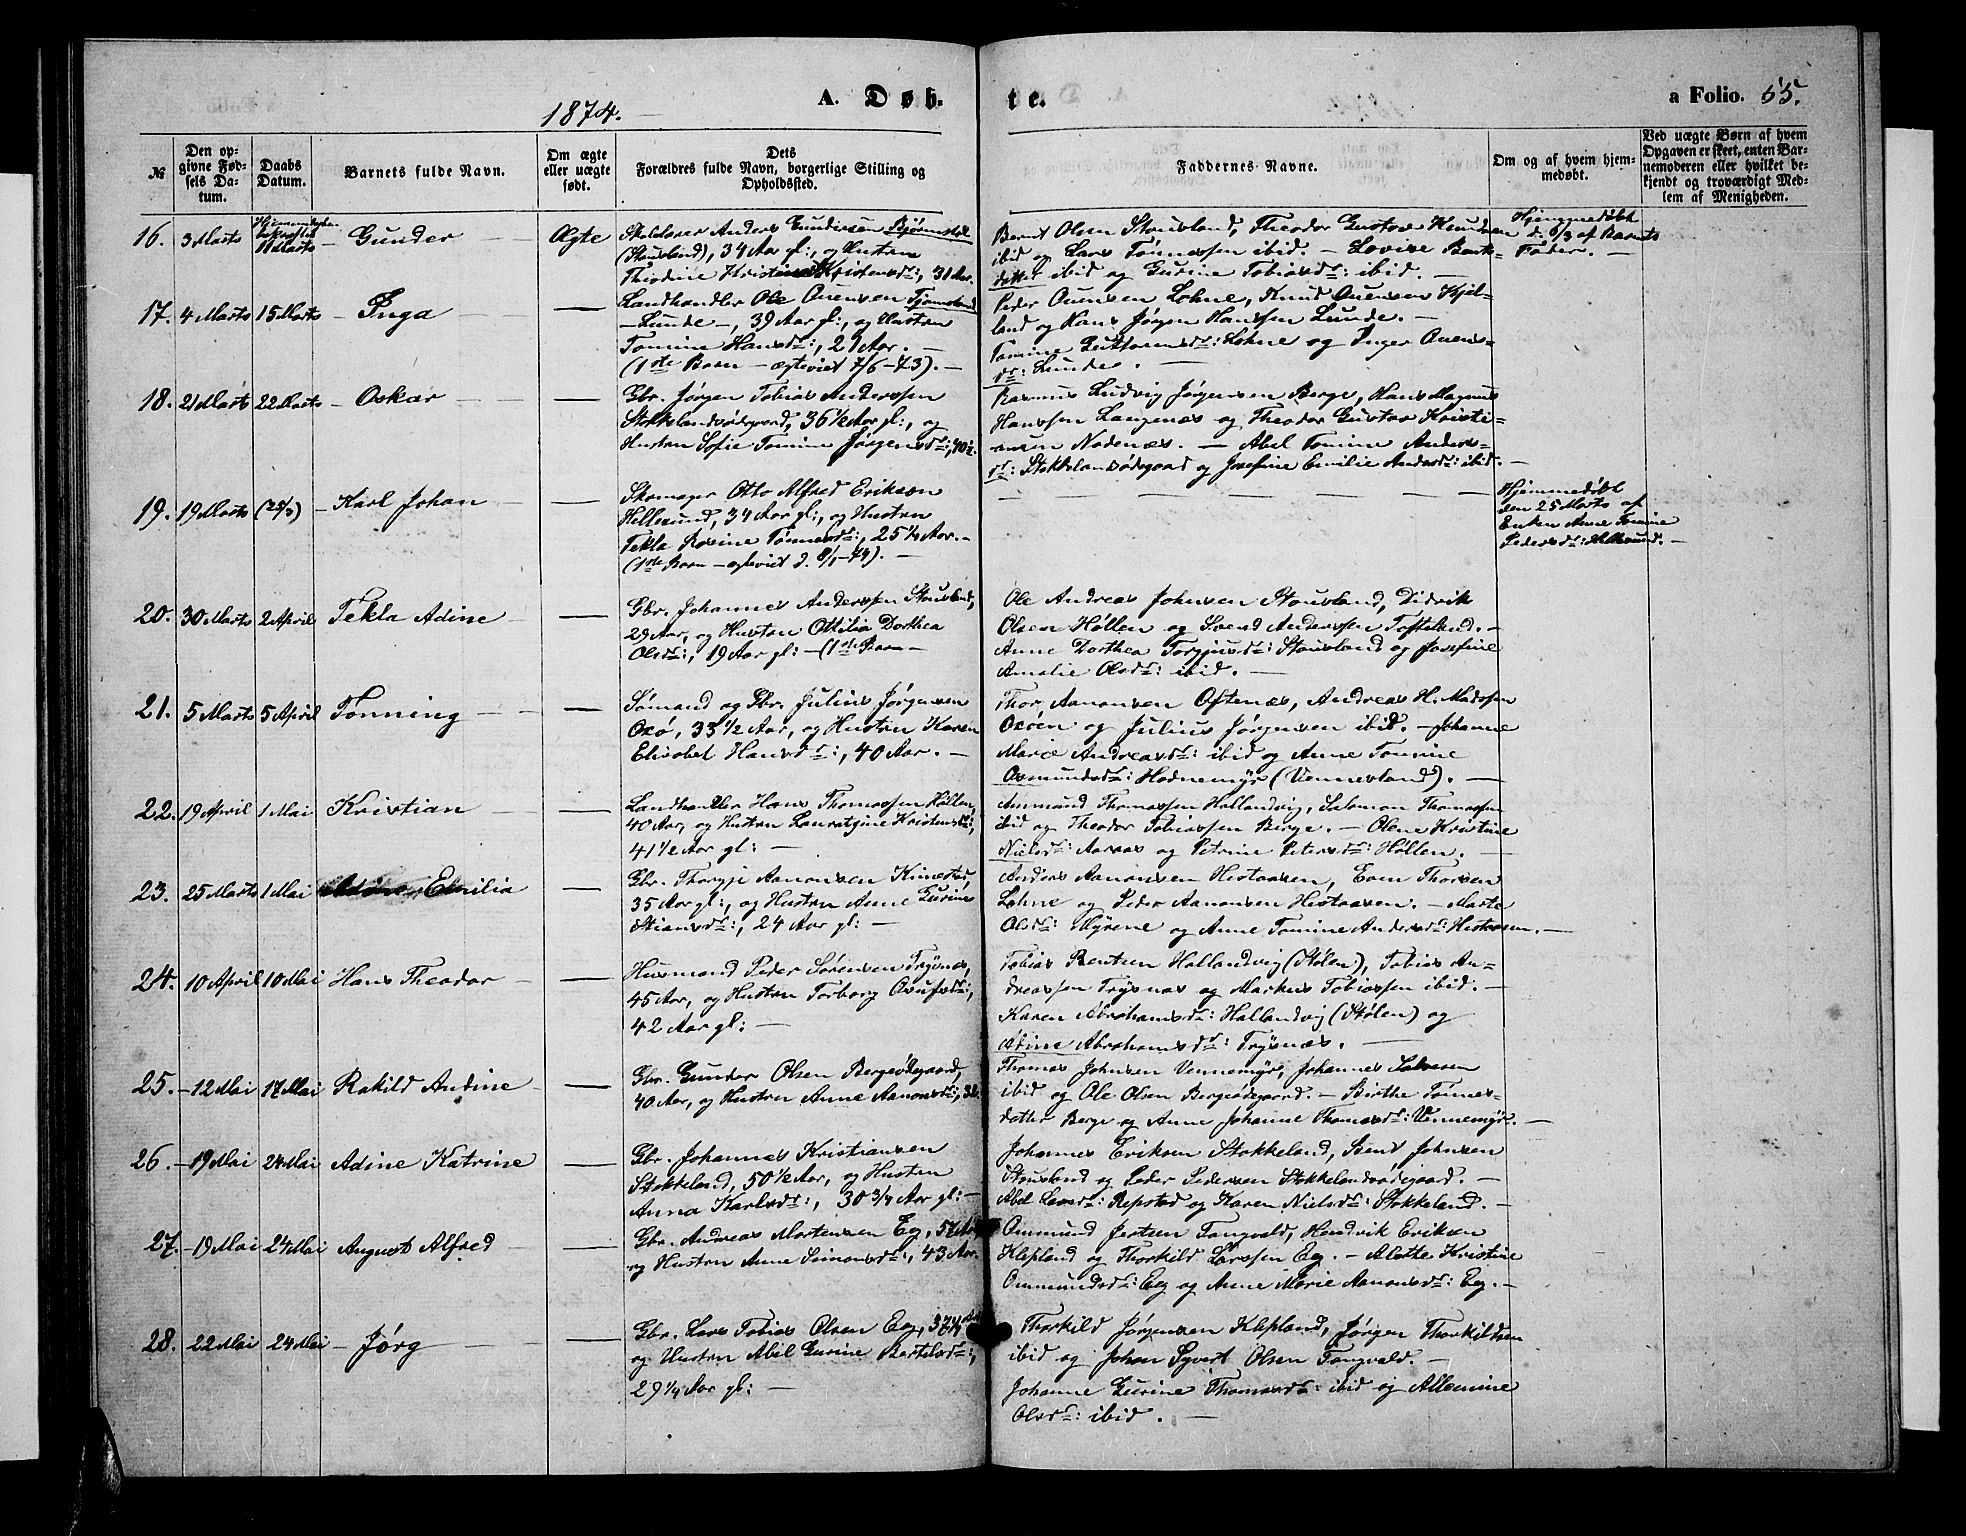 1874.
A. Døb- te.
a Folio. 55.
№
Den op-
givne Fød-
sels Da-
tum.
Daabs
Datum.
Barnets fulde Navn.
Om ægte
eller uægte
født.
Dets
Forældres fulde Navn, borgerlige Stilling og
Opholdssted.
Faddernes Navne.
Om og af hvem hjem-
medøbt.
Ved uægte Børn af hvem
Opgaven er skeet, enten Bar-
nemoderen eller hvilket be-
kjendt og troværdigt Med-
lem af Menigheden.
16. 3 Marts
bekræftet
Gunder
Ægte
Anders Gundersen
(Stausland), 34 Aar gl:, og Hustru
Kristensdr:, 31 Aar.
Bernt Olsen Stausland, Theodor Gustav Knudsen
ibid og Lars Tønnessen ibid. — Lovise
datter ibid og Gurine Tobiasdr: ibid. —
Hjemmedøbt
d. 6/3 af Barnets
Fader. —
17. 4 Marts 15 Marts — Inga —
Landhandler Ole Ouensen Tjomsland
— Lunde —, 39 Aar gl:, og Hustru
Tomine Hansdr:, 21 Aar. —
(1ste Barn — ægteviet 7/6 – 73). —
Peder Ouensen Lohne, Knud Ouensen Kjel-
land og Hans Jørgen Hanssen Lunde. —
Tomine Guttormsdr: Lohne og Inger Ouens-
dr: Lunde. —
18. 21 Marts 22 Marts — Oskar —
Gbr. Jørgen Tobias Anderssen
Stokkelandsødegaard, 36 1/2 Aar gl:, og
Hustru Sofie Tomine Jørgensdr:, 40
Rasmus Ludvig Jørgensen Berge, Hans Magnus
Hanssen Langenæs og Theodor Gustav Kristi-
ansen Nodenæs. — Abel Tomine Anders-
dr: Stokkelandsødegaard og Josefine Emilie Andersdr: ibid. —
19. 19 Marts (25/3) — Karl Johan —
Skomager Otto Alfred Eriksen
Hellesund, 34 Aar gl:, og Hustru
Tekla Rosine Tønnesdr:, 25 1/4 Aar. —
(1ste Barn — ægteviet d. 8/1 – 74). —
Hjemmedøbt
den 25 Marts af
Enken Anne Tomine
Pedersdr: Hellesund. —
20. 30 Marts 2 April Tekla Adine —
Gbr. Johannes Anderssen Stausland,
29 Aar, og Hustru Ottilia Dorthea
Olsdr:, 19 Aar gl: — (1ste Barn —
Ole Andreas Johnsen Stausland, Didrik
Olsen Høllen og Svend Anderssen Tofteland. —
Anne Dorthea Torgjusdr: Stausland og Josefine
Amalie Olsdr: ibid. —
21. 5 Marts 5 April Tønning —
Sømand og Gbr. Julius Jørgensen
Oxø, 33 1/2 Aar, og Hustru Karen
Elisabet Hansdr:, 40 Aar. —
Thor Aanonsen Oftenæs, Andreas H. Madssen
Oxøen og Julius Jørgensen ibid. — Johanne
Marie Andreasdr: ibid og Anne Tomine
Osmundsdr: Hodnemyr (Vennesland). —
22. 19 April 1 Mai Kristian —
Landhandler Hans Thomassen Høllen,
40 Aar, og Hustru Lauratgine Kristensdr:,
41 1/2 Aar gl: —
Ammund Thomassen Hallandvig, Salomon Thomassen
ibid og Theodor Tobiassen Berge. — Olene Kristine
Nielsdr: Aaros og Petrine Petersdr: Høllen. —
23. 25 Marts 1 Mai Emilia
Gbr. Thorgje Aanonsen Kinestad,
35 Aar gl:, og Hustru Anne Gurine
Stiansdr:, 24 Aar gl: —
Anders Aanonsen Hestaasen, Even Thorsen
Lohne og Peder Aanonsen Hestaasen. — Marte
Olsdr: Myrene og Anne Tomine Andersdr: Hestaasen. —
24. 10 April 10 Mai Hans Theodor —
Husmand Peder Sørensen Trysnæs,
45 Aar, og Hustru Torborg Osufsdr:,
42 Aar gl: —
Tobias Bentsen Hallandvig (Stølen), Tobias An-
dreassen Trysnæs og Markus Tobiassen ibid. —
Karen Abrahamsdr: Hallandvig (Stølen) og
Adine Abrahamsdr: Trysnæs. —
25. — 12 Mai 17 Mai Rakild Andine —
Gbr. Gunder Olsen Bergeødegaard,
40 Aar, og Hustru Anne Aanonsdr:,
Thomas Johnsen Vennemyr, Johannes Salvesen
ibid og Ole Olsen Bergeødegaard. — Birthe Tønnes-
datter Berge og Anne Johanne Thomasdr: Vennemyr. —
26. — 19 Mai 24 Mai Adine Katrine
Gbr. Johannes Kristiansen
Stokkeland, 50 1/2 Aar, og Hustru
Anna Karlsdr:, 30 3/4 Aar gl: —
Johannes Eriksen Stokkeland, Bent Johnsen
Stausland og Peder Pedersen Stokkelandsødegaard. —
Abel Larsdr: Repstad og Karen Nielsdr: Stokkeland. —
27. — 19 Mai 24 Mai August Alfred —
Gbr. Andreas Mortensen Eg, 57 Aar,
og Hustru Anne Simonsdr:, 43 Aar.
Ommund Jertsen Tangvald, Hendrik Eriksen
Klepland og Thorkild Larssen Eg. — Alette Kristine
Ommundsdr: Eg og Anne Marie Aanonsdr: Eg. —
28. — 22 Mai 24 Mai — Jørg —
Gbr. Lars Tobias Olsen Eg,
og Hustru Abel Gurine Bertelsdr:,
29 1/4 Aar gl: —
Thorkild Jørgensen Klepland, Jørgen Thorkildsen
ibid og Johan Syvert Olsen Tangvald. —
Johanne Gurine Thomasdr: ibid og Allemine
Olsdr: ibid. —